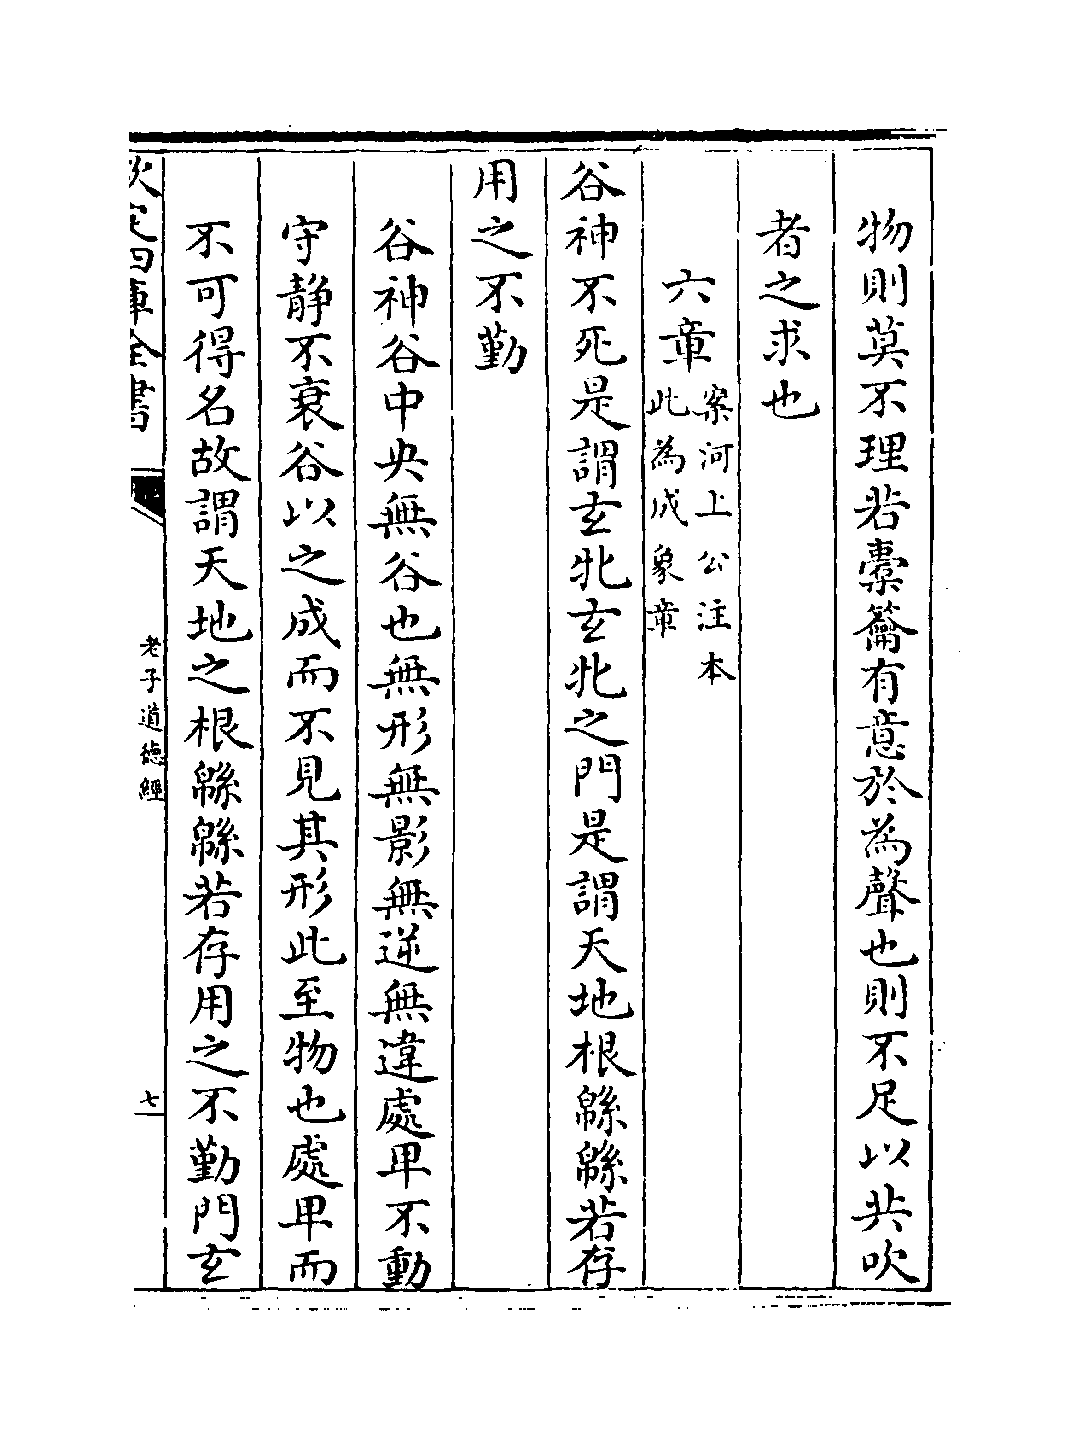 物則莫不理若橐籥有意於為聲也則不足以共吹
者之求也
六章案河上公注本
此為成象章
谷神不死是謂玄牝玄牝之門是謂天地根緜緜若存
用之不勤
谷神谷中央無谷也無形無影無逆無違處卑不動
守靜不衰谷以之成而不見其形此至物也處卑而
不可得名故謂天地之根緜緜若存用之不勤門玄
欽定四庫全書
老子道德經
七